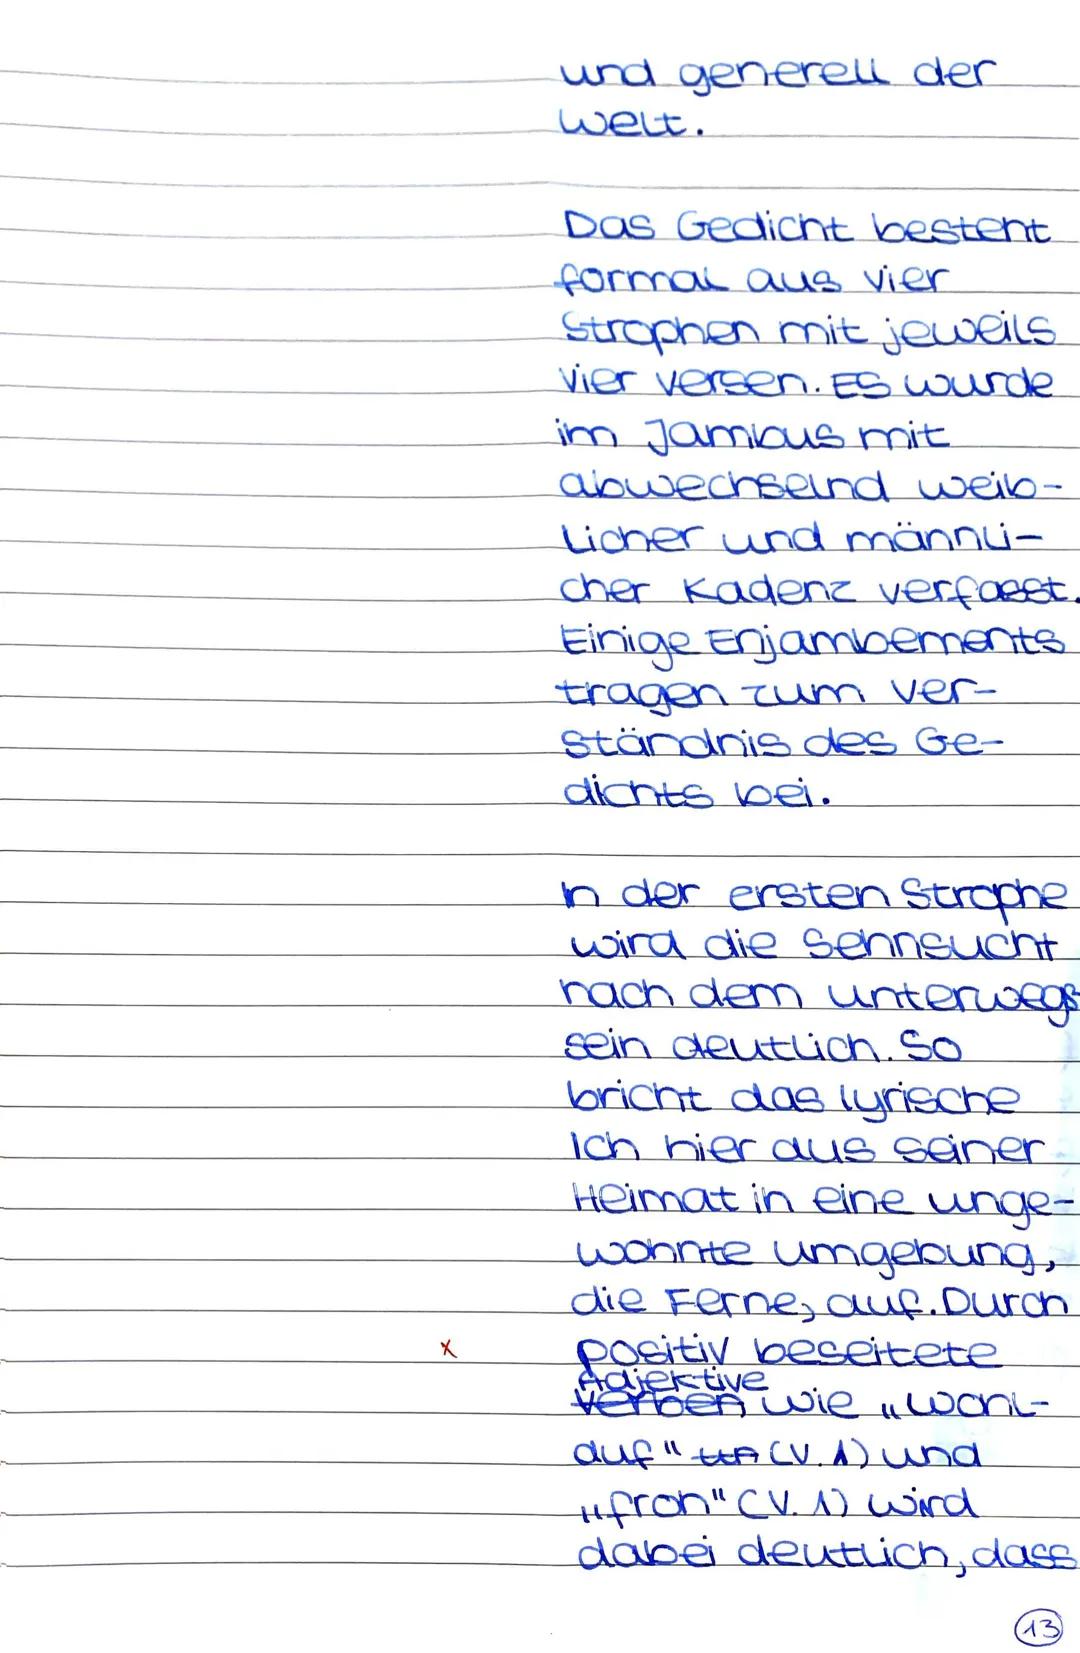 und generell der
Welt.
Das Gedicht besteht
formal aus vier
Strophen mit jeweils
vier Versen. Es wurde
im Jambus mit
abwechselnd weib-
licher und männli-
cher Kadenz verfasst.
Einige Enjambements
tragen zum Ver-
ständnis des Ge-
dichts bei.
In der ersten Strophe
wird die Sehnsucht
nach dem unterwegs
sein deutlich. So
bricht das lyrische
Ich hier aus seiner
Heimat in eine unge-
wohnte Umgebung,
die Ferne, auf. Durch
x positiv beseitete
Adjektive
Verben wie „Wohl-
auf" (V. 1) und
„froh" (V. 1) wird
dabei deutlich, dass
13